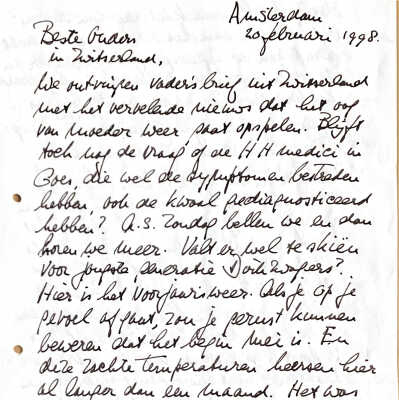 Amsterdam
Beste Ouders 20 februari 1998.
in Zwitserland,
We ontvingen vader's brief uit Zwitserland
met het vervelende nieuws dat het oog
van moeder weer gaat opspelen. Blijft
toch nog de vraag of de HH medici in
Goes, die wel de symptomen bestreden
hebben, ook de kwaal gediagnosticeerd
hebben? A.S. Zondag bellen we en dan
horen we meer. Valt er wel te skiën
voor jongste generatie
Hier is het voorjaarsweer. Als je op je
gevoel afgaat, zou je gerust kunnen
beweren dat het begin mei is. En
deze zachte temperaturen heersen hier
al langer dan een maand. Het was